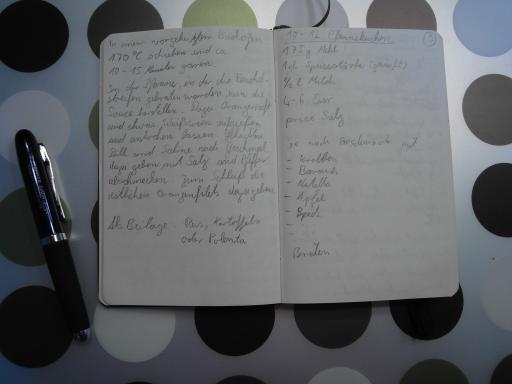 In einen vorgeheizten Backofen
170°C schieben und ca
10-15 Minuten garen.
In der Pfanne, in der die
streifen gebraten wurden, nun die
Sauce herstellen. Dazu Orangensaft
und etwas Weißwein aufgießen
und einkochen lassen.
und Sahne nach Geschmack
dazu geben mit Salz und Pfeffer
abschmecken zum Schluß die
restlichen Orangenfilets dazugeben
Als Beilage: Reis, Kartoffeln
oder Polenta
10-12 Pfannekuchen
175 g Mehl
1 EL Speisestärke (gehäuft)
1/2 l Milch
4-6 Eier
prise Salz
je nach Geschmack mit
- Kirschen
- Bananen
- Nutella
- Äpfel
- Speck
-
Braten